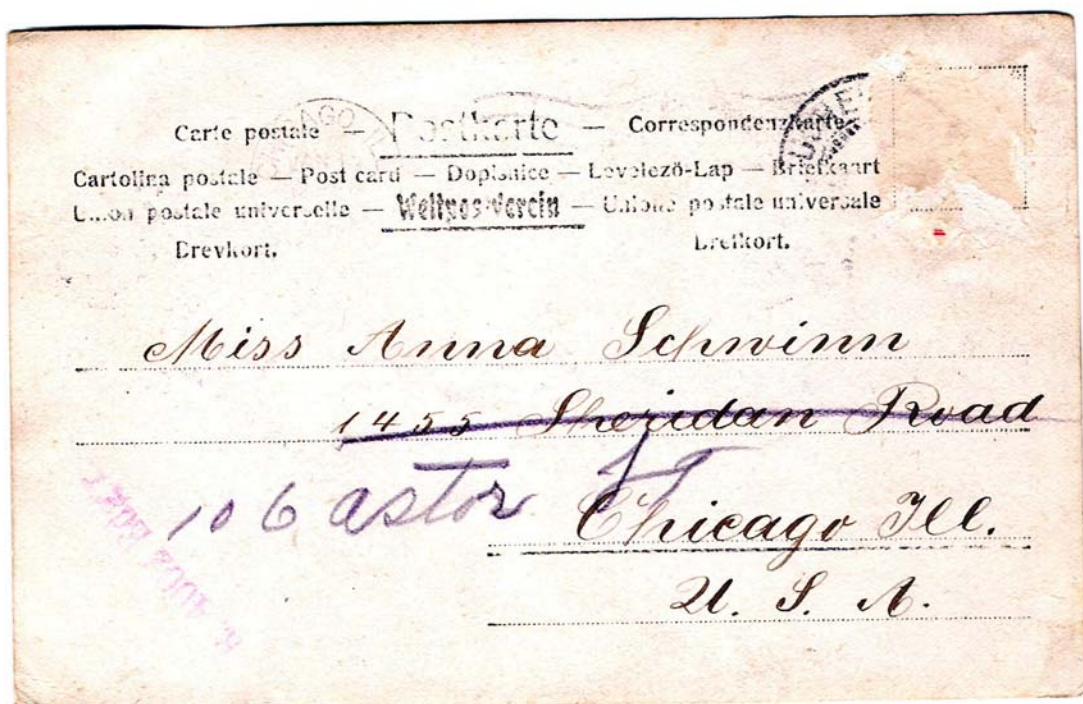 Carte postale — Postkarte — Correspondenzkarte
Cartolina postale — Post card — Dopisnice — Levelező-Lap — Briefkaart
Union postale universelle — Weltpostverein — Unione postale universale
Brevkort. Brefkort.
Miss Anna Schwinn
1455 Sheridan Road
106 Astor St
Chicago Ill.
U. S. A.